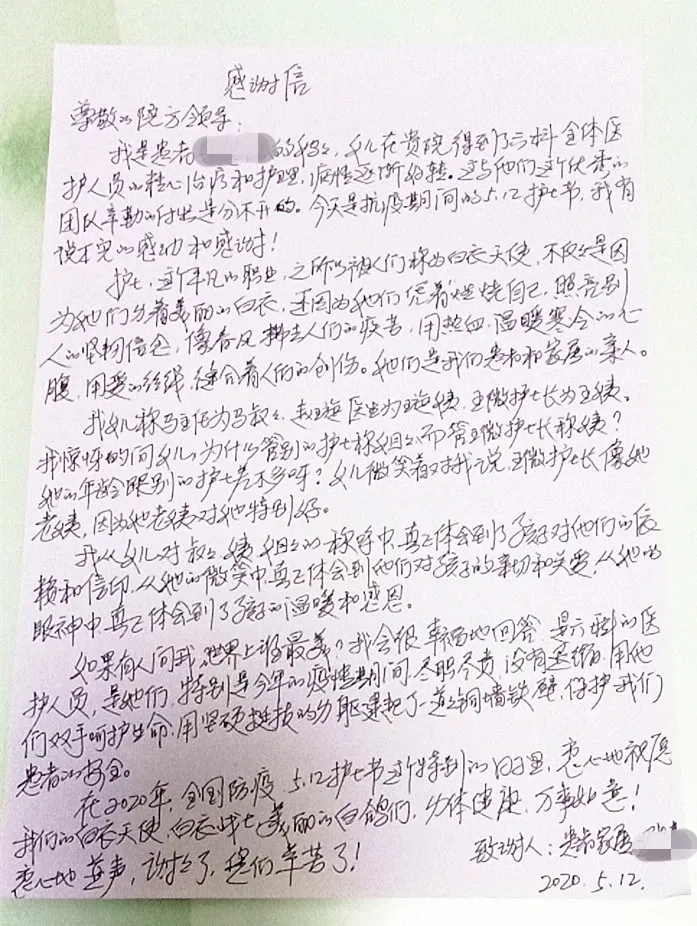 感谢信
尊敬的院方领导:
我是患者 的妈妈,女儿在贵院得到了六科全体医
护人员的精心治疗和护理,病情逐渐好转。这与他们这个优秀的
团队辛勤的付出是分不开的。今天是抗疫期间的5.12护士节,我有
说不完的感动和感谢!
护士,这个平凡的职业,之所以被人们称为白衣天使,不仅仅是因
为她们穿着美丽的白衣,还因为她们凭着燃烧自己,照亮别
人的坚韧信念,像春风拂去人们的疾苦,用热血温暖寒冷的心
腹,用爱的丝线,缝合着人们的创伤。她们是我们患者和家属的亲人。
我女儿称马主任为马叔叔,赵璇医生为璇姨,王微护士长为王姨。
我惊讶的问女儿,为什么管别的护士称姐姐,而管王微护士长称姨?
她的年龄跟别的护士差不多呀?女儿微笑着对我说,王微护士长像她
老姨,因为她老姨对她特别好。
我从女儿对叔叔、姨、姐姐的称呼中,真正体会到了孩子对他们的信
赖和信仰,从她的微笑中真正体会到他们对孩子的亲切和关爱,从她的
眼神中,真正体会到了孩子的温暖和感恩。
如果有人问我,世界上谁最美?我会很幸福地回答:是六科的医
护人员,是她们,特别是今年的疫情期间,尽职尽责,没有退缩,用他
们双手呵护生命,用坚硬挺拔的身躯垒起了一道道铜墙铁壁,保护我们
患者的安全。
在2020年,全国防疫,5.12护士节这个特别的日子里,衷心地祝愿
我们的白衣天使,白衣战士,美丽的白鸽们,身体健康,万事如意!
衷心地道声,谢谢了,您们辛苦了!
致谢人:患者家属
2020.5.12.